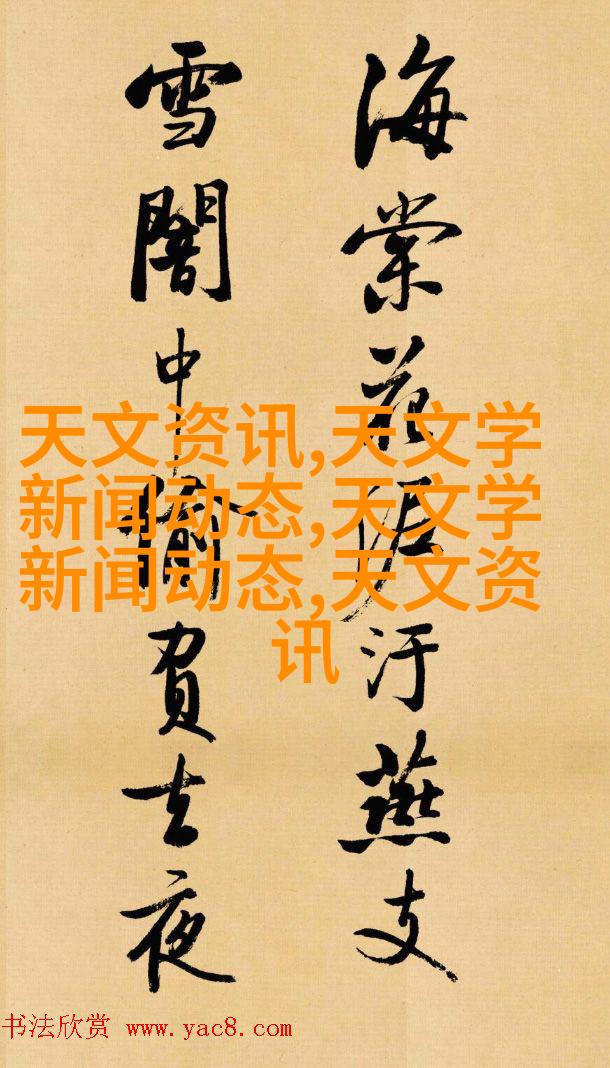 海棠花泥汙燕支
雪闇中偷負去夜
天文资讯,天文学
新闻动态,天文学
新闻动态,天文资
讯
书法欣赏 www.yac8.com